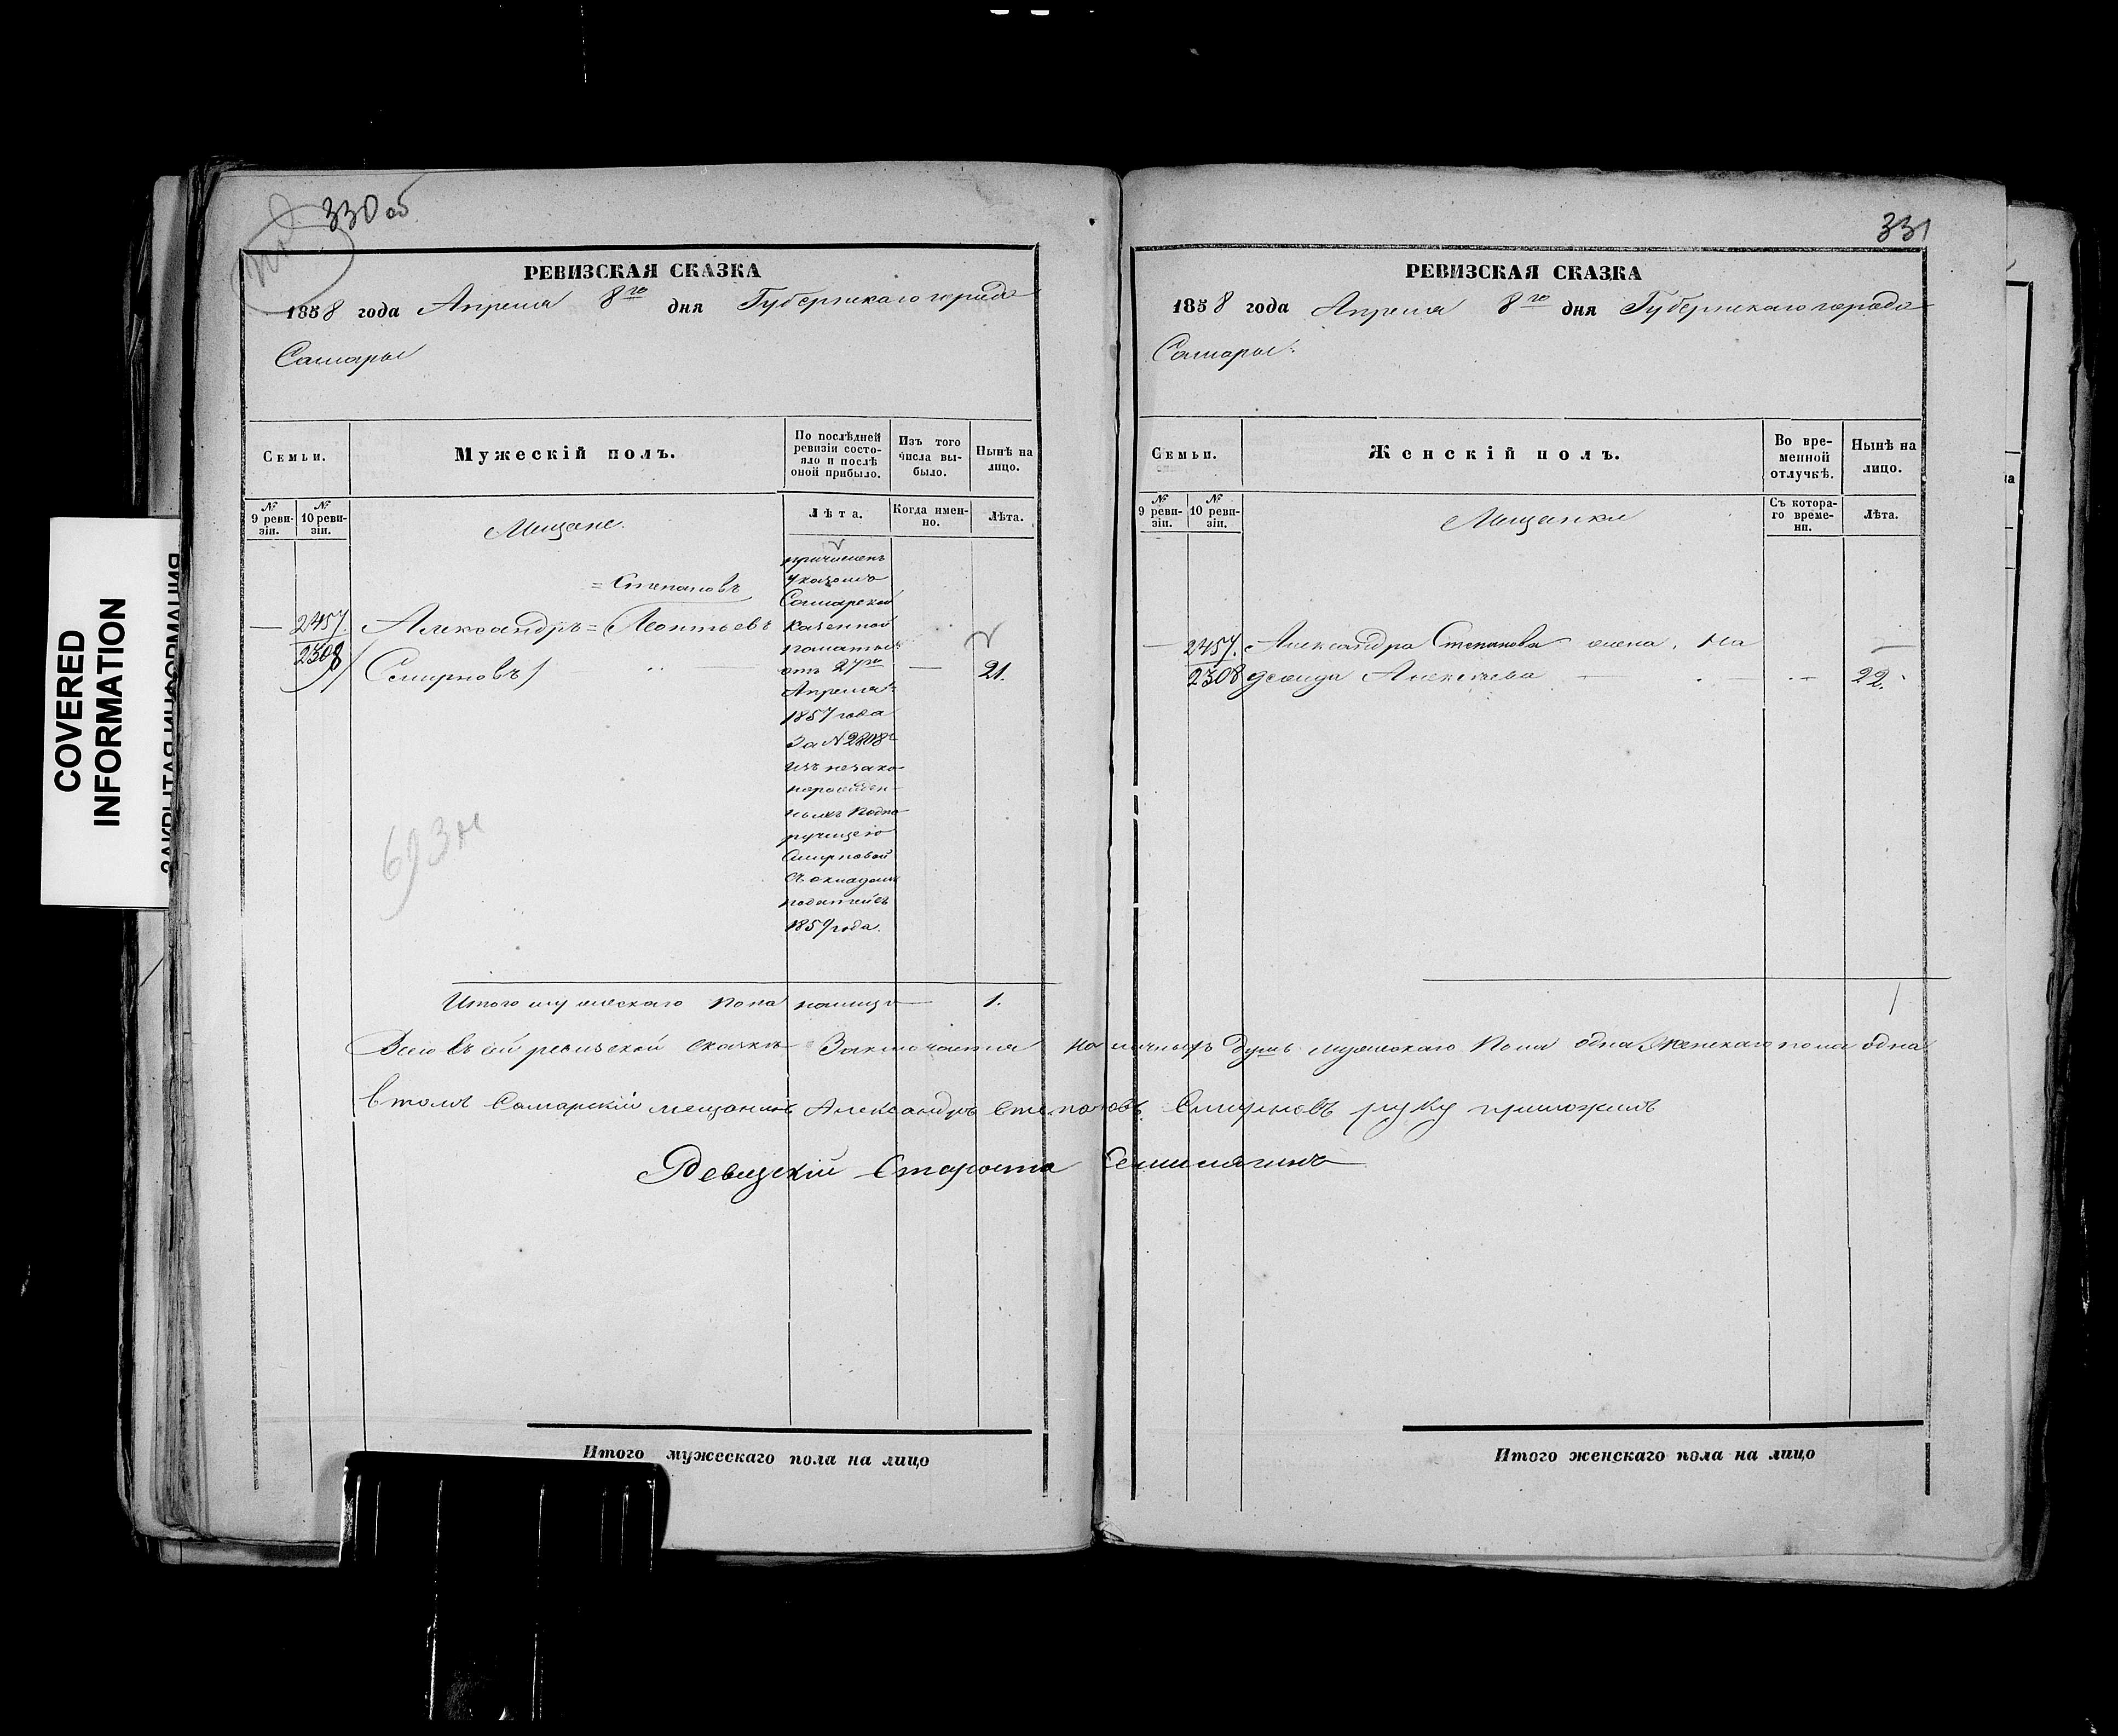 330 об
РЕВИЗСКАЯ СКАЗКА
1858 года Апреля 8го дня Губернскаго города
Самары
Семьи.
Мужескій полъ.
По послѣдней ревизіи состояло и послѣ оной прибыло.
Изъ того числа выбыло.
Нынѣ на лицо.
№ 9 ревизіи.
№ 10 ревизіи.
Мещане.
Лѣта.
Когда именно.
Лѣта.
причисленъ
указомъ
=Степановъ
Самарской
— 2457. Александръ=Леонтьевъ
казенной
палаты
2308 Смирновъ)
отъ 27го
— 21.
Апреля
1857 года
За №2808
изъ незако
норожден
ныхъ Подпо
ручицею
Смирновой
съ окладомъ
податей съ
1857 года.
693
Итого мужескаго пола налицо — 1.
331
РЕВИЗСКАЯ СКАЗКА
1858 года Апреля 8го дня Губернскаго города
Самары.
Семьи.
Женскій полъ.
Во временной отлучкѣ.
Нынѣ на лицо.
№ 9 ревизіи.
№ 10 ревизіи.
Мещанки
Съ котораго времени.
Лѣта.
— 2457. Александра Степанова жена. На
2308 дежда Алексѣева — 22.
1
Всего въ сей ревизской сказкѣ Заключается наличныхъ душъ мужескаго Пола одна Женскаго пола одна
въ томъ Самарскій мещанинъ Александръ Степановъ Смирновъ руку приложилъ
Ревизскій Староста
Итого мужескаго пола на лицо
Итого женскаго пола на лицо
COVERED
INFORMATION
ЗАКРЫТАЯ ИНФОРМАЦИЯ